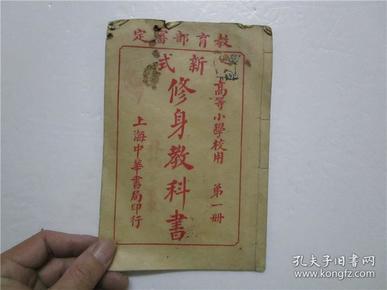 教育部審定
新式
高等小學校用 第一冊
修身教科書
上海中華書局印行
孔夫子旧书网